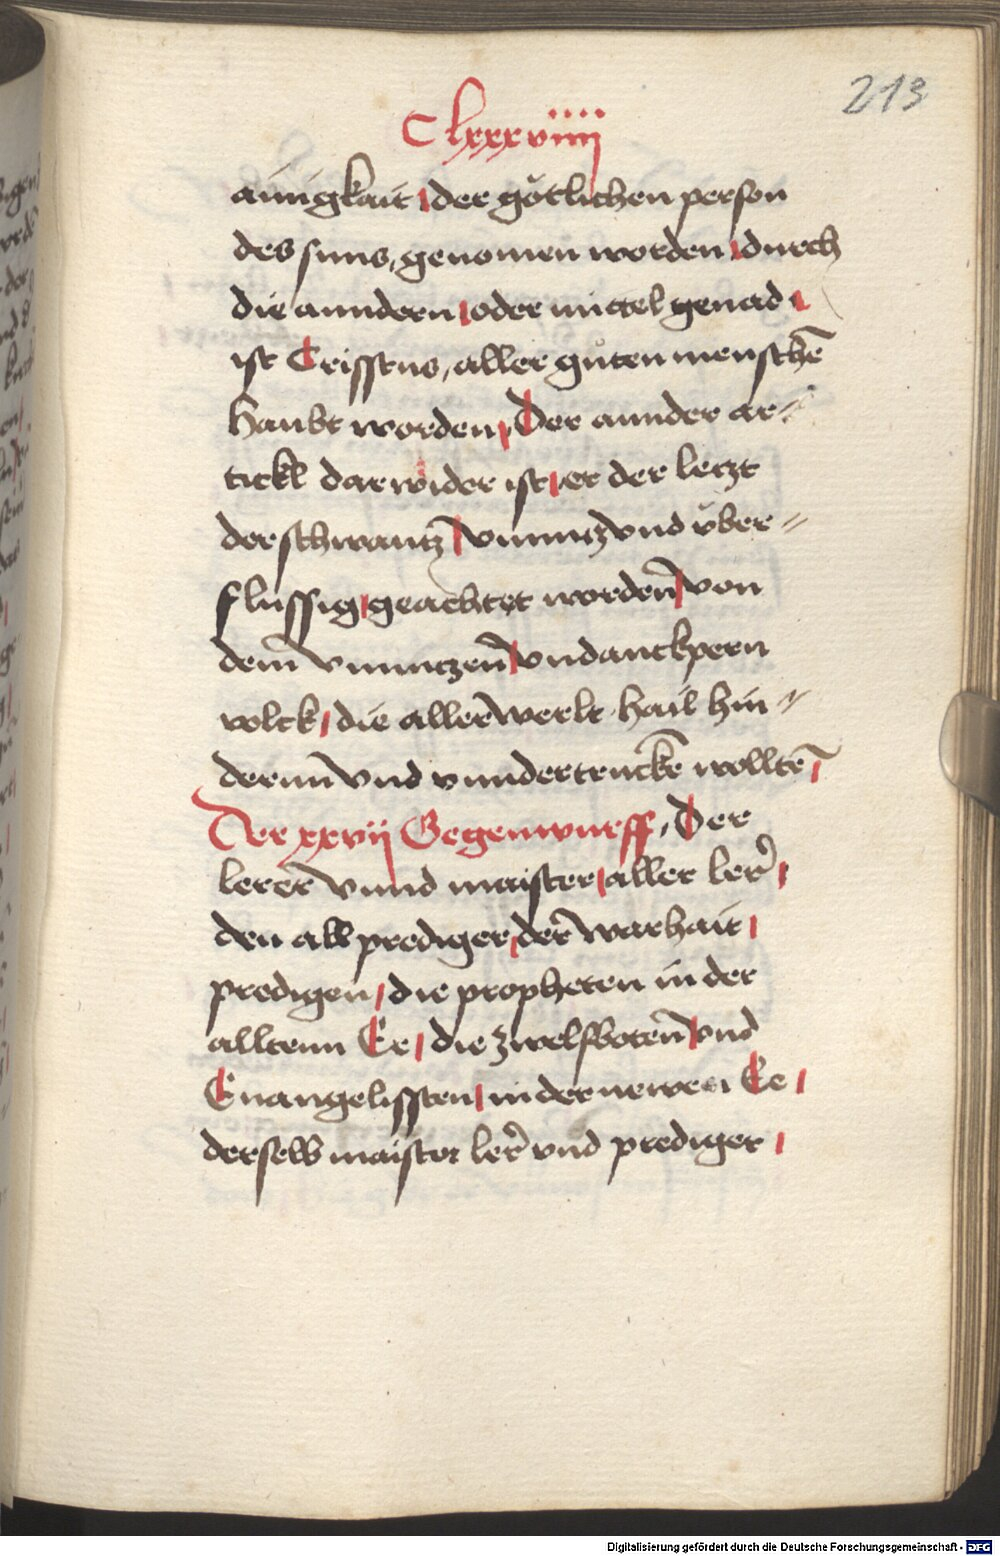 213
Clxxxviiii
ainigkait / der götlichen person
des suns, genomen worden / durch
die anndern / oder mittel genad /
ist Crisstus, aller gůten menschē
haubt worden / Der annder ar-
tickl darwider ist / er der letzt
der schwantz / vnnutz vnd über-
flussig / geachtet worden / von
dem vnnutzen / vndanckpern
volck / die aller werlt hail hin-
dernn vnd vnndertrucken wolltē /
Der xxvij Gegenwurff, Der
lerer vnnd maister / aller ler /
den all prediger / der warhait /
predigen / die propheten in der
alltenn Ee / die zwelfboten / vnd
Euangelissten / in der newen Ee /
derselb maister ler vnd prediger /
Digitalisierung gefördert durch die Deutsche Forschungsgemeinschaft - DFG